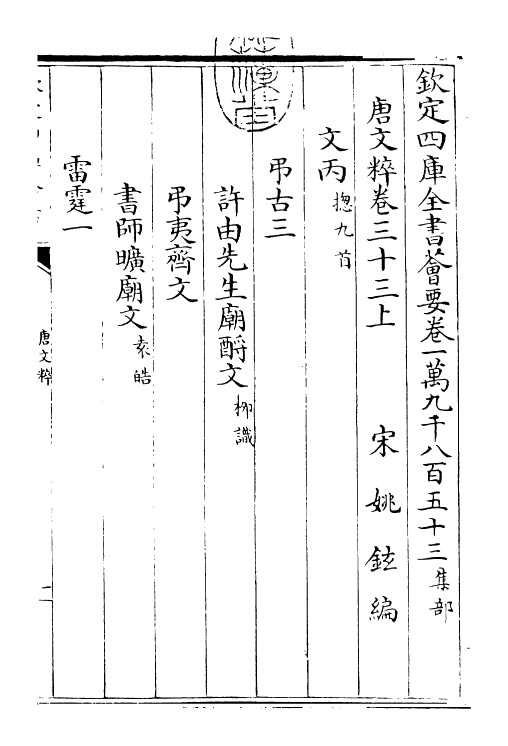 欽定四庫全書薈要卷一萬九千八百五十三集部
唐文粹卷三十三上 宋姚鉉編
文丙揔九首
弔古三
許由先生廟酹文柳識
弔夷齊文
書師曠廟文袁皓
雷霆一
唐文粹
一